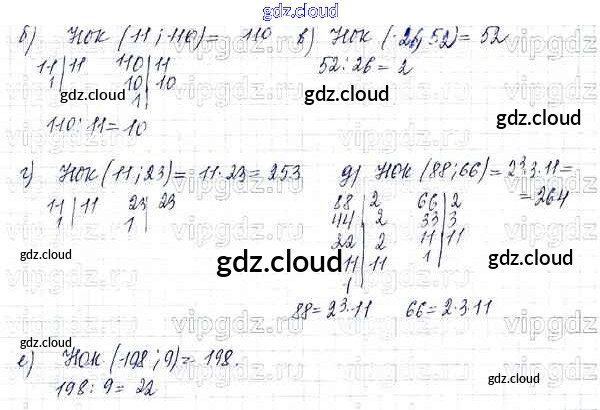 gdz.cloud
б) НОК (11; 110) = 110 в) НОК (26; 52) = 52
11 | 11 110 | 11 52 : 26 = 2
1 | 10 | 10
1 |
gdz.cloud gdz.cloud
110 : 11 = 10
gdz.cloud
г) НОК (11; 23) = 11 · 23 = 253 д) НОК (88; 66) = 2³·3·11 =
= 264
11 | 11 23 | 23 88 | 2 66 | 2
1 | 1 | 44 | 2 33 | 3
22 | 2 11 | 11
11 | 11 1 |
1
gdz.cloud gdz.cloud gdz.cloud
88 = 2³·11 66 = 2·3·11
е) НОК (198; 9) = 198.
198 : 9 = 22
gdz.cloud gdz.cloud
vipgdz.ru